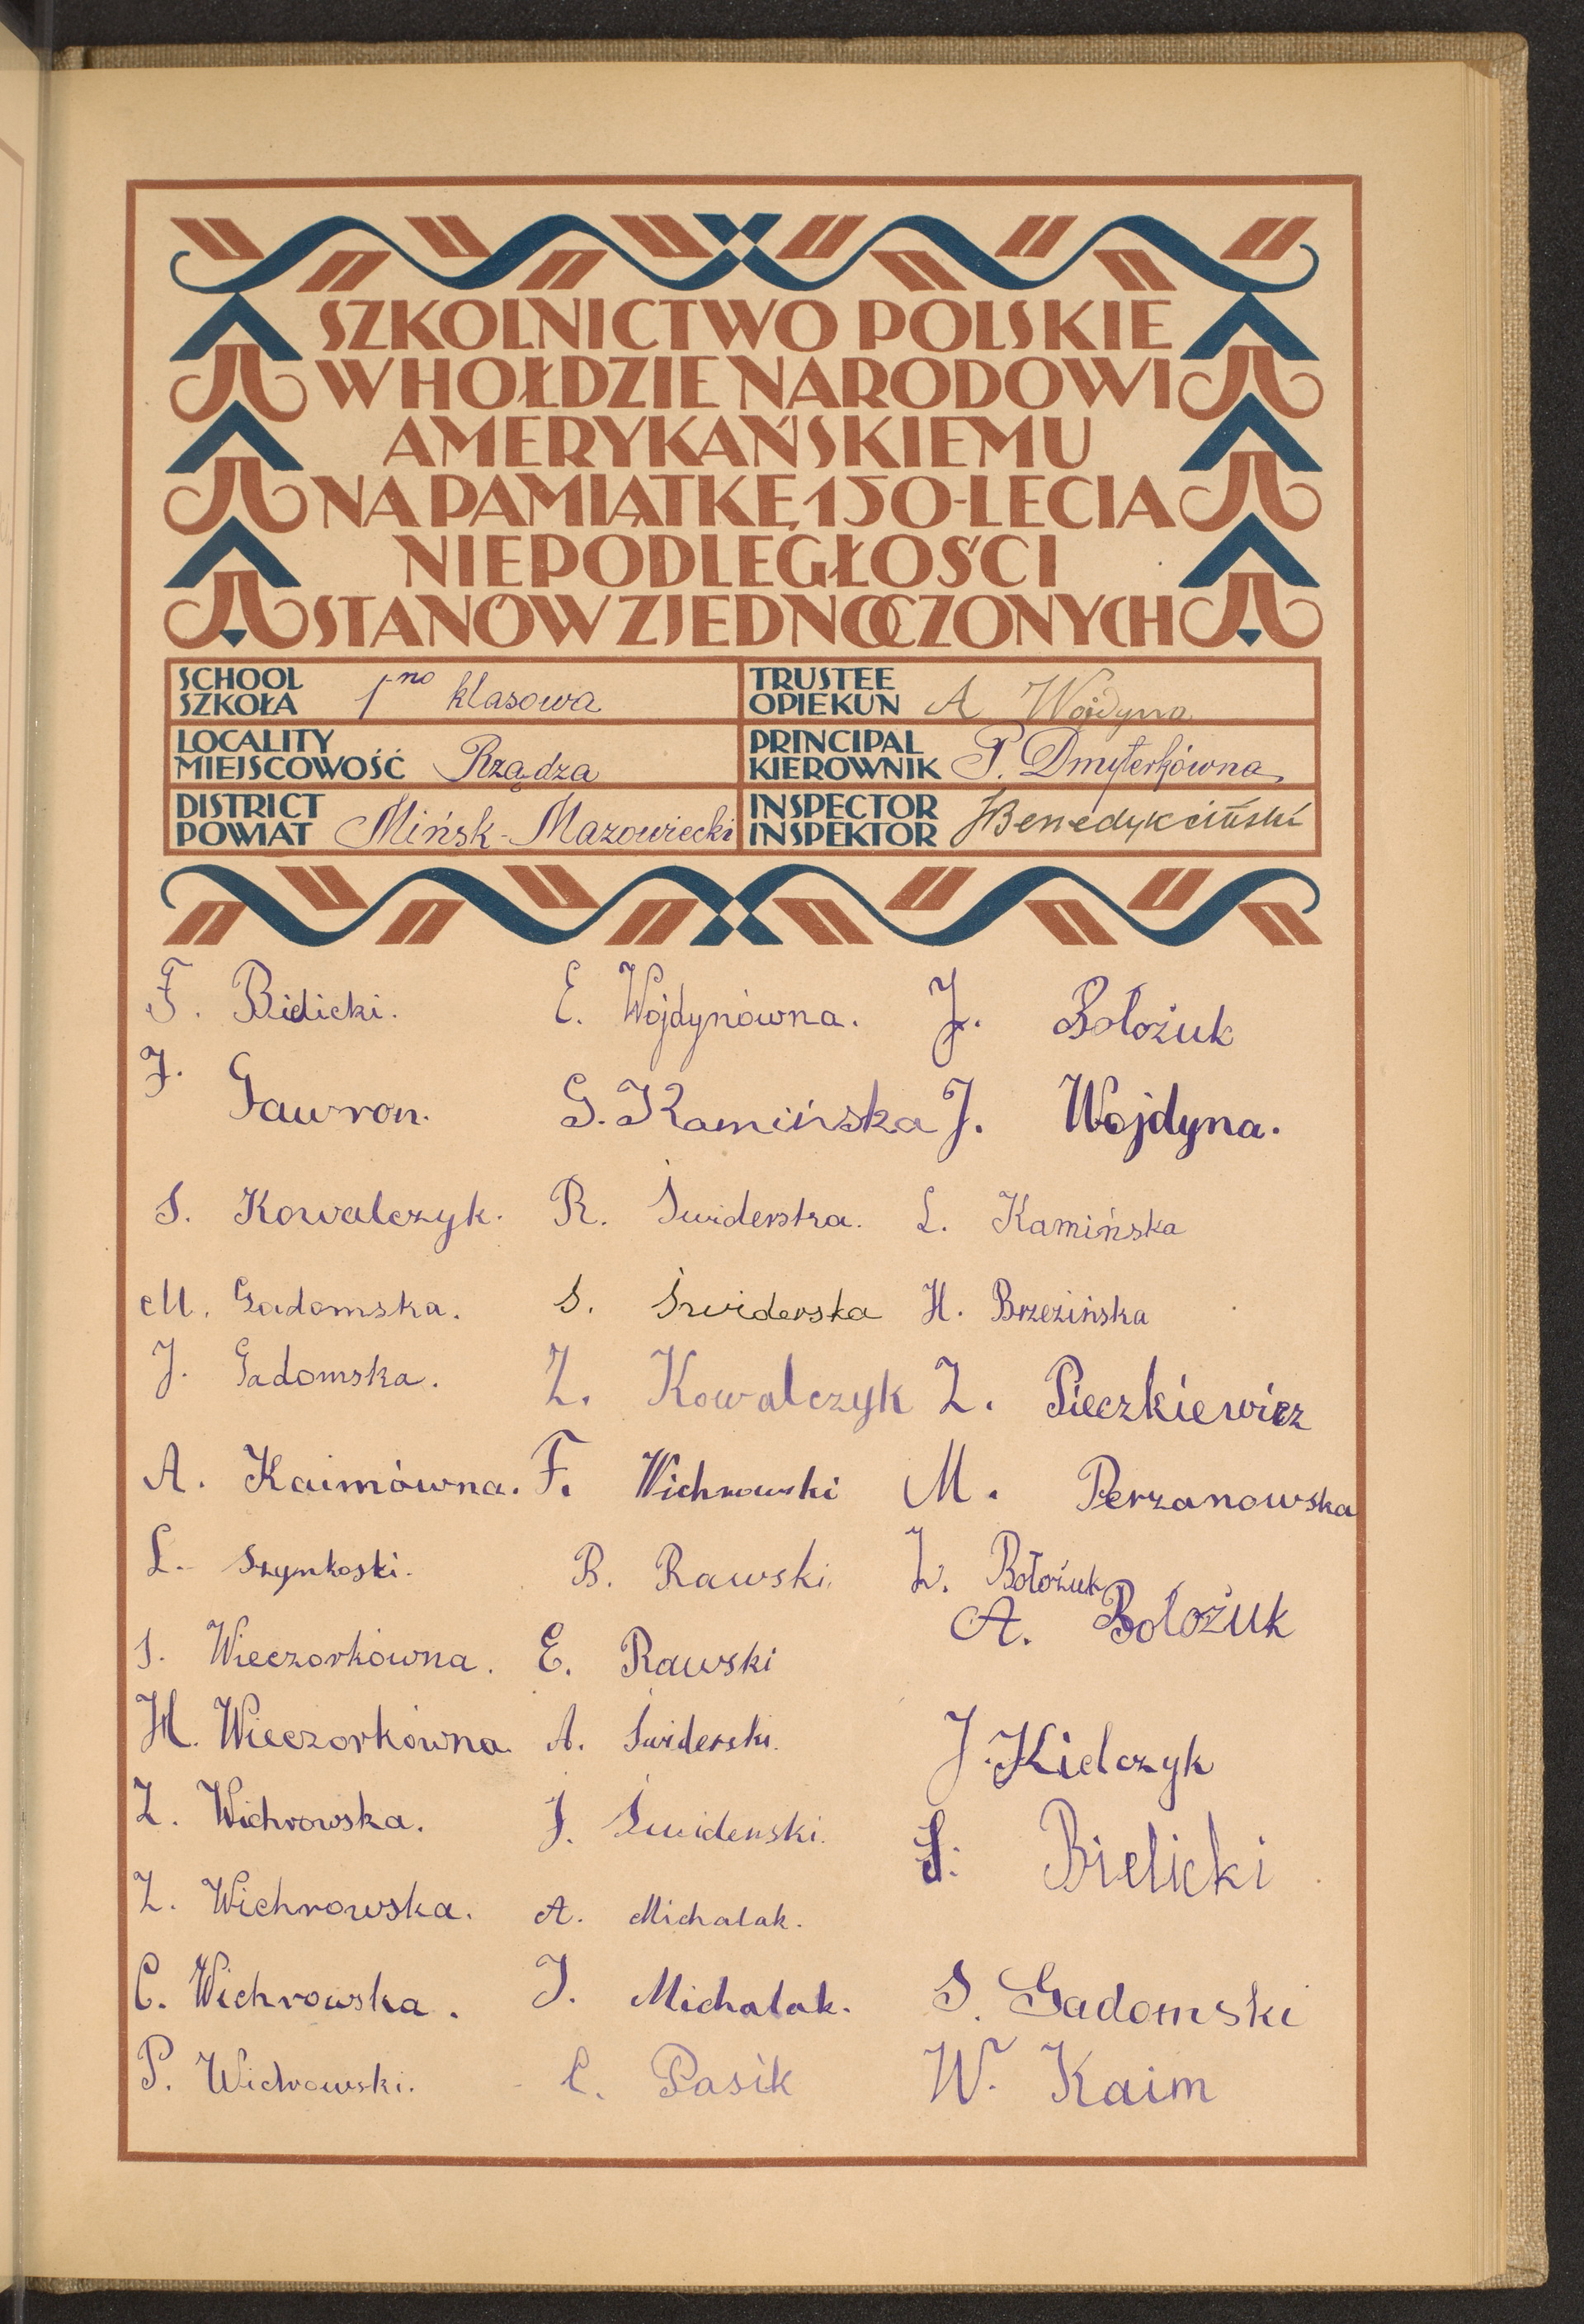 SZKOLNICTWO POLSKIE
W HOŁDZIE NARODOWI
AMERYKAŃSKIEMU
NA PAMIĄTKĘ 150-LECIA
NIEPODLEGŁOŚCI
STANÓW ZJEDNOCZONYCH
SCHOOL
SZKOŁA 1no klasowa
TRUSTEE
OPIEKUN A Wojdyna
LOCALITY
MIEJSCOWOŚĆ Rządza
PRINCIPAL
KIEROWNIK P. Dmyterkówna
DISTRICT
POWIAT Mińsk-Mazowiecki
INSPECTOR
INSPEKTOR JBenedykciński
F. Bielicki.
J. Gawron.
S. Kowalczyk.
M. Gadomska.
J. Gadomska.
A. Kaimówna.
L. Szymkoski.
S. Wieczorkówna.
H. Wieczorkówna.
Z. Wichrowska.
Z. Wichrowska.
C. Wichrowska.
P. Wichrowski.
E. Wojdynówna.
G. Kamińska
R. Świderska.
S. Świderska
Z. Kowalczyk
F. Wichrowski
B. Rawski.
E. Rawski
A. Świderski.
J. Świderski.
A. Michalak.
J. Michalak.
C. Pasik
J. Bołożuk
J. Wojdyna.
L. Kamińska
H. Brzezińska
Z. Pieczkiewicz
M. Perzanowska
Z. Bołożuk
A. Bołożuk
J. Kielczyk
S. Bielicki
S. Gadomski
W. Kaim